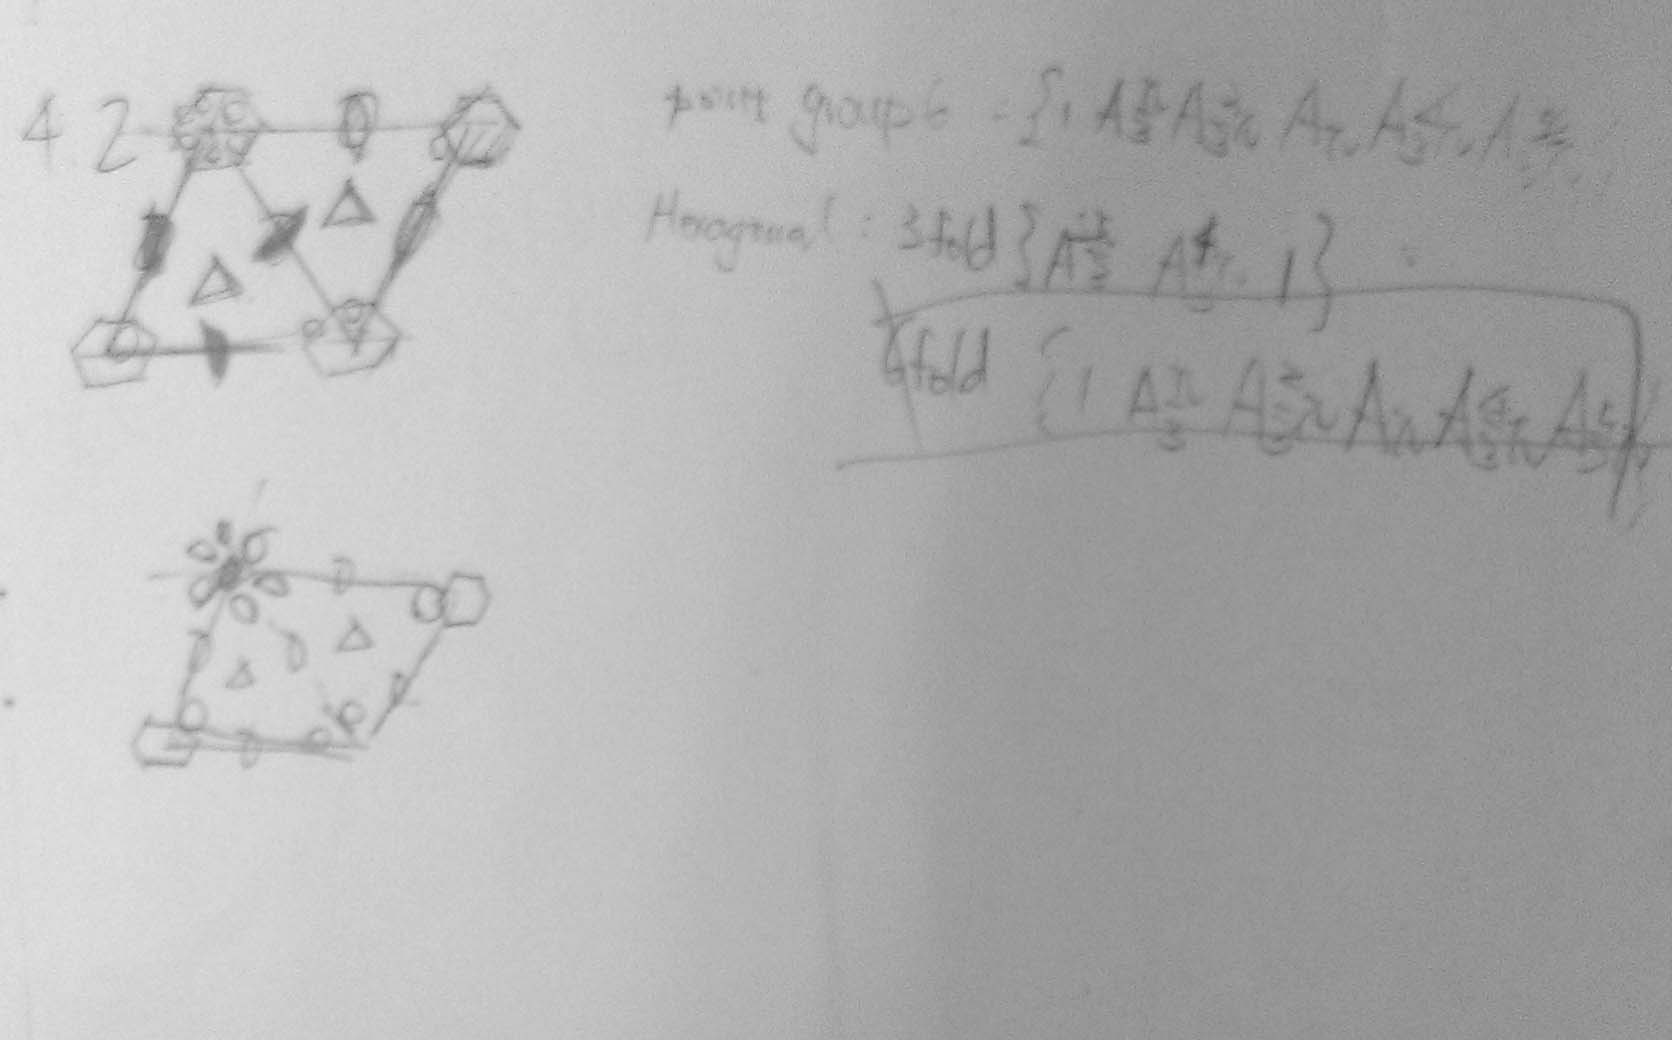 4.2
point group 6 = {1 Aπ/3 A2/3π Aπ A4/3π A5/3π}
Hexagonal : 3fold {A2π/3 A4/3π 1}
6fold {1 Aπ/3 A2/3π Aπ A4/3π A5/3π}